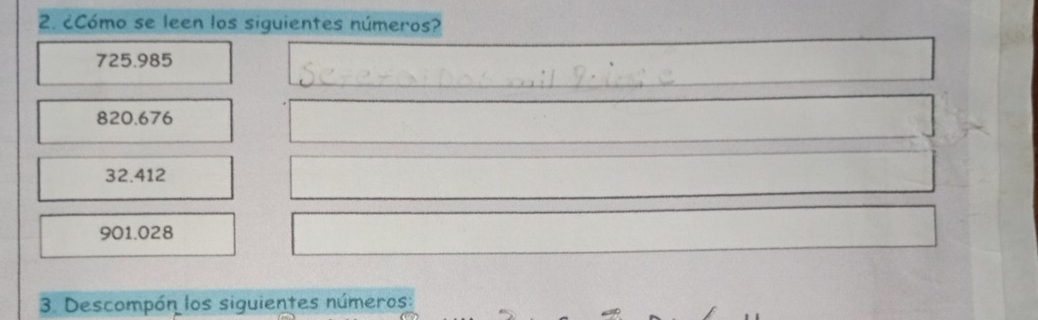 2. ¿Cómo se leen los siguientes números?
725.985
mil
820.676
32.412
901.028
3. Descompón los siguientes números: